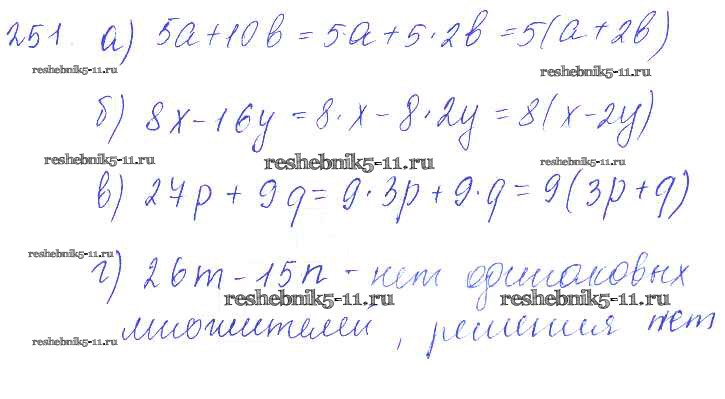 251. а) 5a+10b = 5·a+5·2b = 5(a+2b)
reshebnik5-11.ru reshebnik5-11.ru
б) 8x-16y = 8·x-8·2y = 8(x-2y)
reshebnik5-11.ru reshebnik5-11.ru reshebnik5-11.ru
в) 27p+9q = 9·3p+9·q = 9(3p+q)
reshebnik5-11.ru
г) 26m-15n - нет одинаковых
reshebnik5-11.ru reshebnik5-11.ru
множителей, решения нет
reshebnik5-11.ru